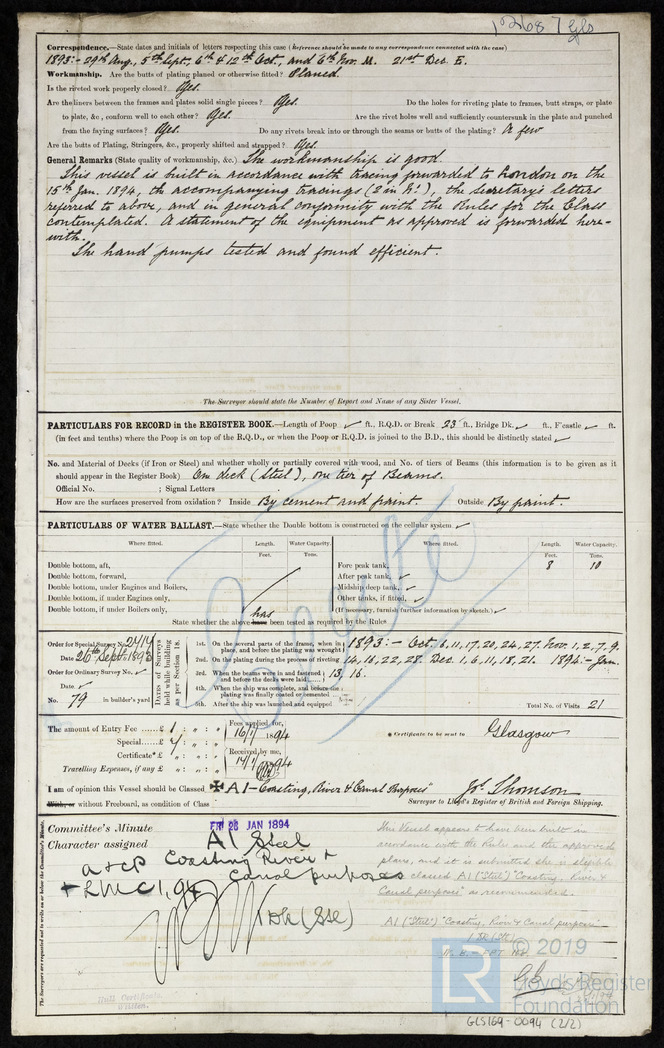 12687 Gls
Correspondence.—State dates and initials of letters respecting this case (Reference should be made to any correspondence connected with the case)
1893:- 29th Aug., 5th Sept., 6th & 12th Oct., and 6th Nov. M. 21st Dec. E.
Workmanship. Are the butts of plating planed or otherwise fitted? Planed.
Is the riveted work properly closed? Yes.
Are the liners between the frames and plates solid single pieces? Yes. Do the holes for riveting plate to frames, butt straps, or plate
to plate, &c., conform well to each other? Yes. Are the rivet holes well and sufficiently countersunk in the plate and punched
from the faying surfaces? Yes. Do any rivets break into or through the seams or butts of the plating? A few
Are the butts of Plating, Stringers, &c., properly shifted and strapped? Yes.
General Remarks (State quality of workmanship, &c.) The workmanship is good.
This vessel is built in accordance with tracing forwarded to London on the
15th Jan. 1894, the accompanying tracings (2 in No.), the secretary's letters
referred to above, and in general conformity with the Rules for the Class
contemplated. A statement of the equipment as approved is forwarded here-
with.
The hand pumps tested and found efficient.
The Surveyor should state the Number of Report and Name of any Sister Vessel.
PARTICULARS FOR RECORD in the REGISTER BOOK.—Length of Poop ✓ ft., R.Q.D. or Break 23 ft., Bridge Dk. ✓ ft., F'castle ✓ ft.
(in feet and tenths) where the Poop is on top of the R.Q.D., or when the Poop or R.Q.D. is joined to the B.D., this should be distinctly stated ✓
No. and Material of Decks (if Iron or Steel) and whether wholly or partially covered with wood, and No. of tiers of Beams (this information is to be given as it
should appear in the Register Book) One deck (Steel), one tier of Beams.
Official No. ; Signal Letters
How are the surfaces preserved from oxidation? Inside By cement and paint. Outside By paint.
PARTICULARS OF WATER BALLAST.—State whether the Double bottom is constructed on the cellular system ✓
Where fitted. Length. Water Capacity. Where fitted. Length. Water Capacity.
Feet. Tons. Feet. Tons.
Double bottom, aft, Fore peak tank, 8 10
Double bottom, forward, After peak tank, ✓
Double bottom, under Engines and Boilers, Midship deep tank, ✓
Double bottom, if under Engines only, Other tanks, if fitted, ✓
Double bottom, if under Boilers only, (If necessary, furnish further information by sketch.) ✓
State whether the above has been tested as required by the Rules
Order for Special Survey No. 2414
Date 26th Sept. 1893
Order for Ordinary Survey No. ✓
Date ✓
No. 79 in builder's yard
Dates of Surveys held while building as per Section 18.
1st. On the several parts of the frame, when in place, and before the plating was wrought 1893:- Oct. 6, 11, 17, 20, 24, 27. Nov. 1, 2, 7, 9.
2nd. On the plating during the process of riveting 14, 16, 22, 28. Dec. 1, 6, 11, 18, 21. 1894:- Jan.
3rd. When the beams were in and fastened and before the decks were laid 13, 16.
4th. When the ship was complete, and before the plating was finally coated or cemented
5th. After the ship was launched and equipped Total No. of Visits 21
The amount of Entry Fee £ 1 : " : "
Special £ 4 : " : "
Certificate £ " : " : "
Travelling Expenses, if any £ " : " : "
Fees applied for, 16/1/1894
Received by me,
Certificate to be sent to Glasgow
I am of opinion this Vessel should be Classed ✠ A1 - "Coasting, River & Canal Purposes"
With, or without Freeboard, as condition of Class
Js. Thomson
Surveyor to Lloyd's Register of British and Foreign Shipping.
Committee's Minute FRI 26 JAN 1894
Character assigned A1 Steel
a & c p Coasting River &
Canal purposes
+ LMC 1,94
1 Dk (Stl)
This Vessel appears to have been built in
accordance with the Rules and the approved
plans, and it is submitted she is eligible
classed A1 (Steel) "Coasting, River &
Canal purposes" as recommended.
A1 (Steel) "Coasting, River & Canal purposes"
1 Dk (Stl)
The Surveyors are requested not to write on or below the Committee's Minute.
Hull Certificate
Written.
© 2019
LR
Lloyd's Register
Foundation
GLS169-0094 (2/2)